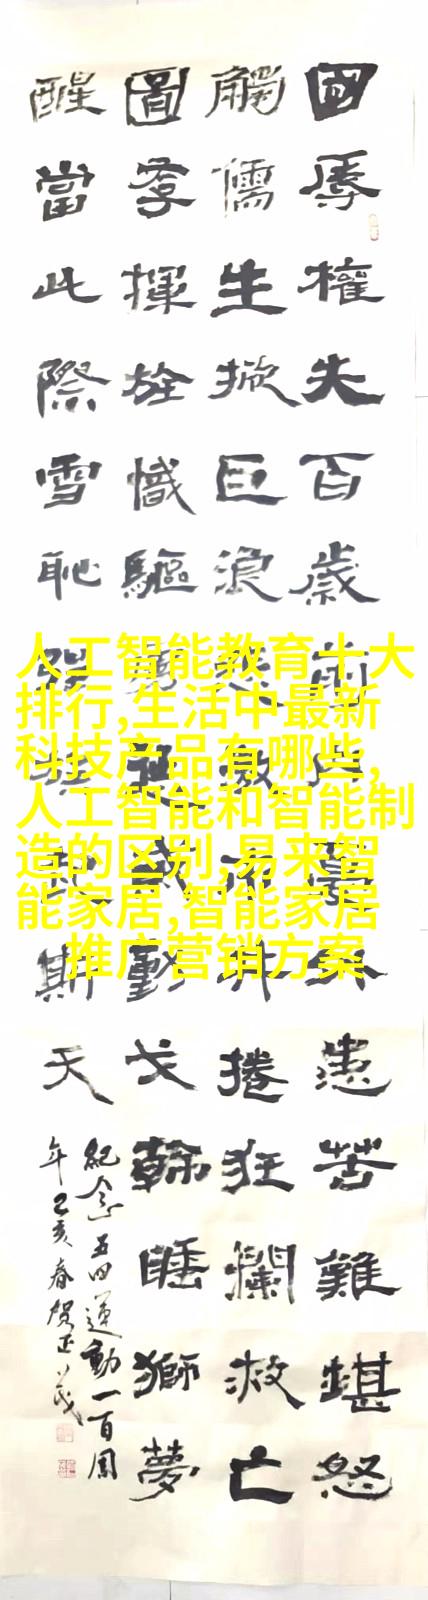 國辱權失百歲前內憂外患苦難堪怒
觸儒生掀巨浪捲狂瀾救亡
圖存揮旌幟驅動戈睡獅夢
醒當此際雪恥斯天
紀念五四運動一百周
年己亥春賀正
人工智能教育十大
排行,生活中最新
科技产品有哪些,
人工智能和智能制
造的区别,易来智
能家居,智能家居
推广营销方案